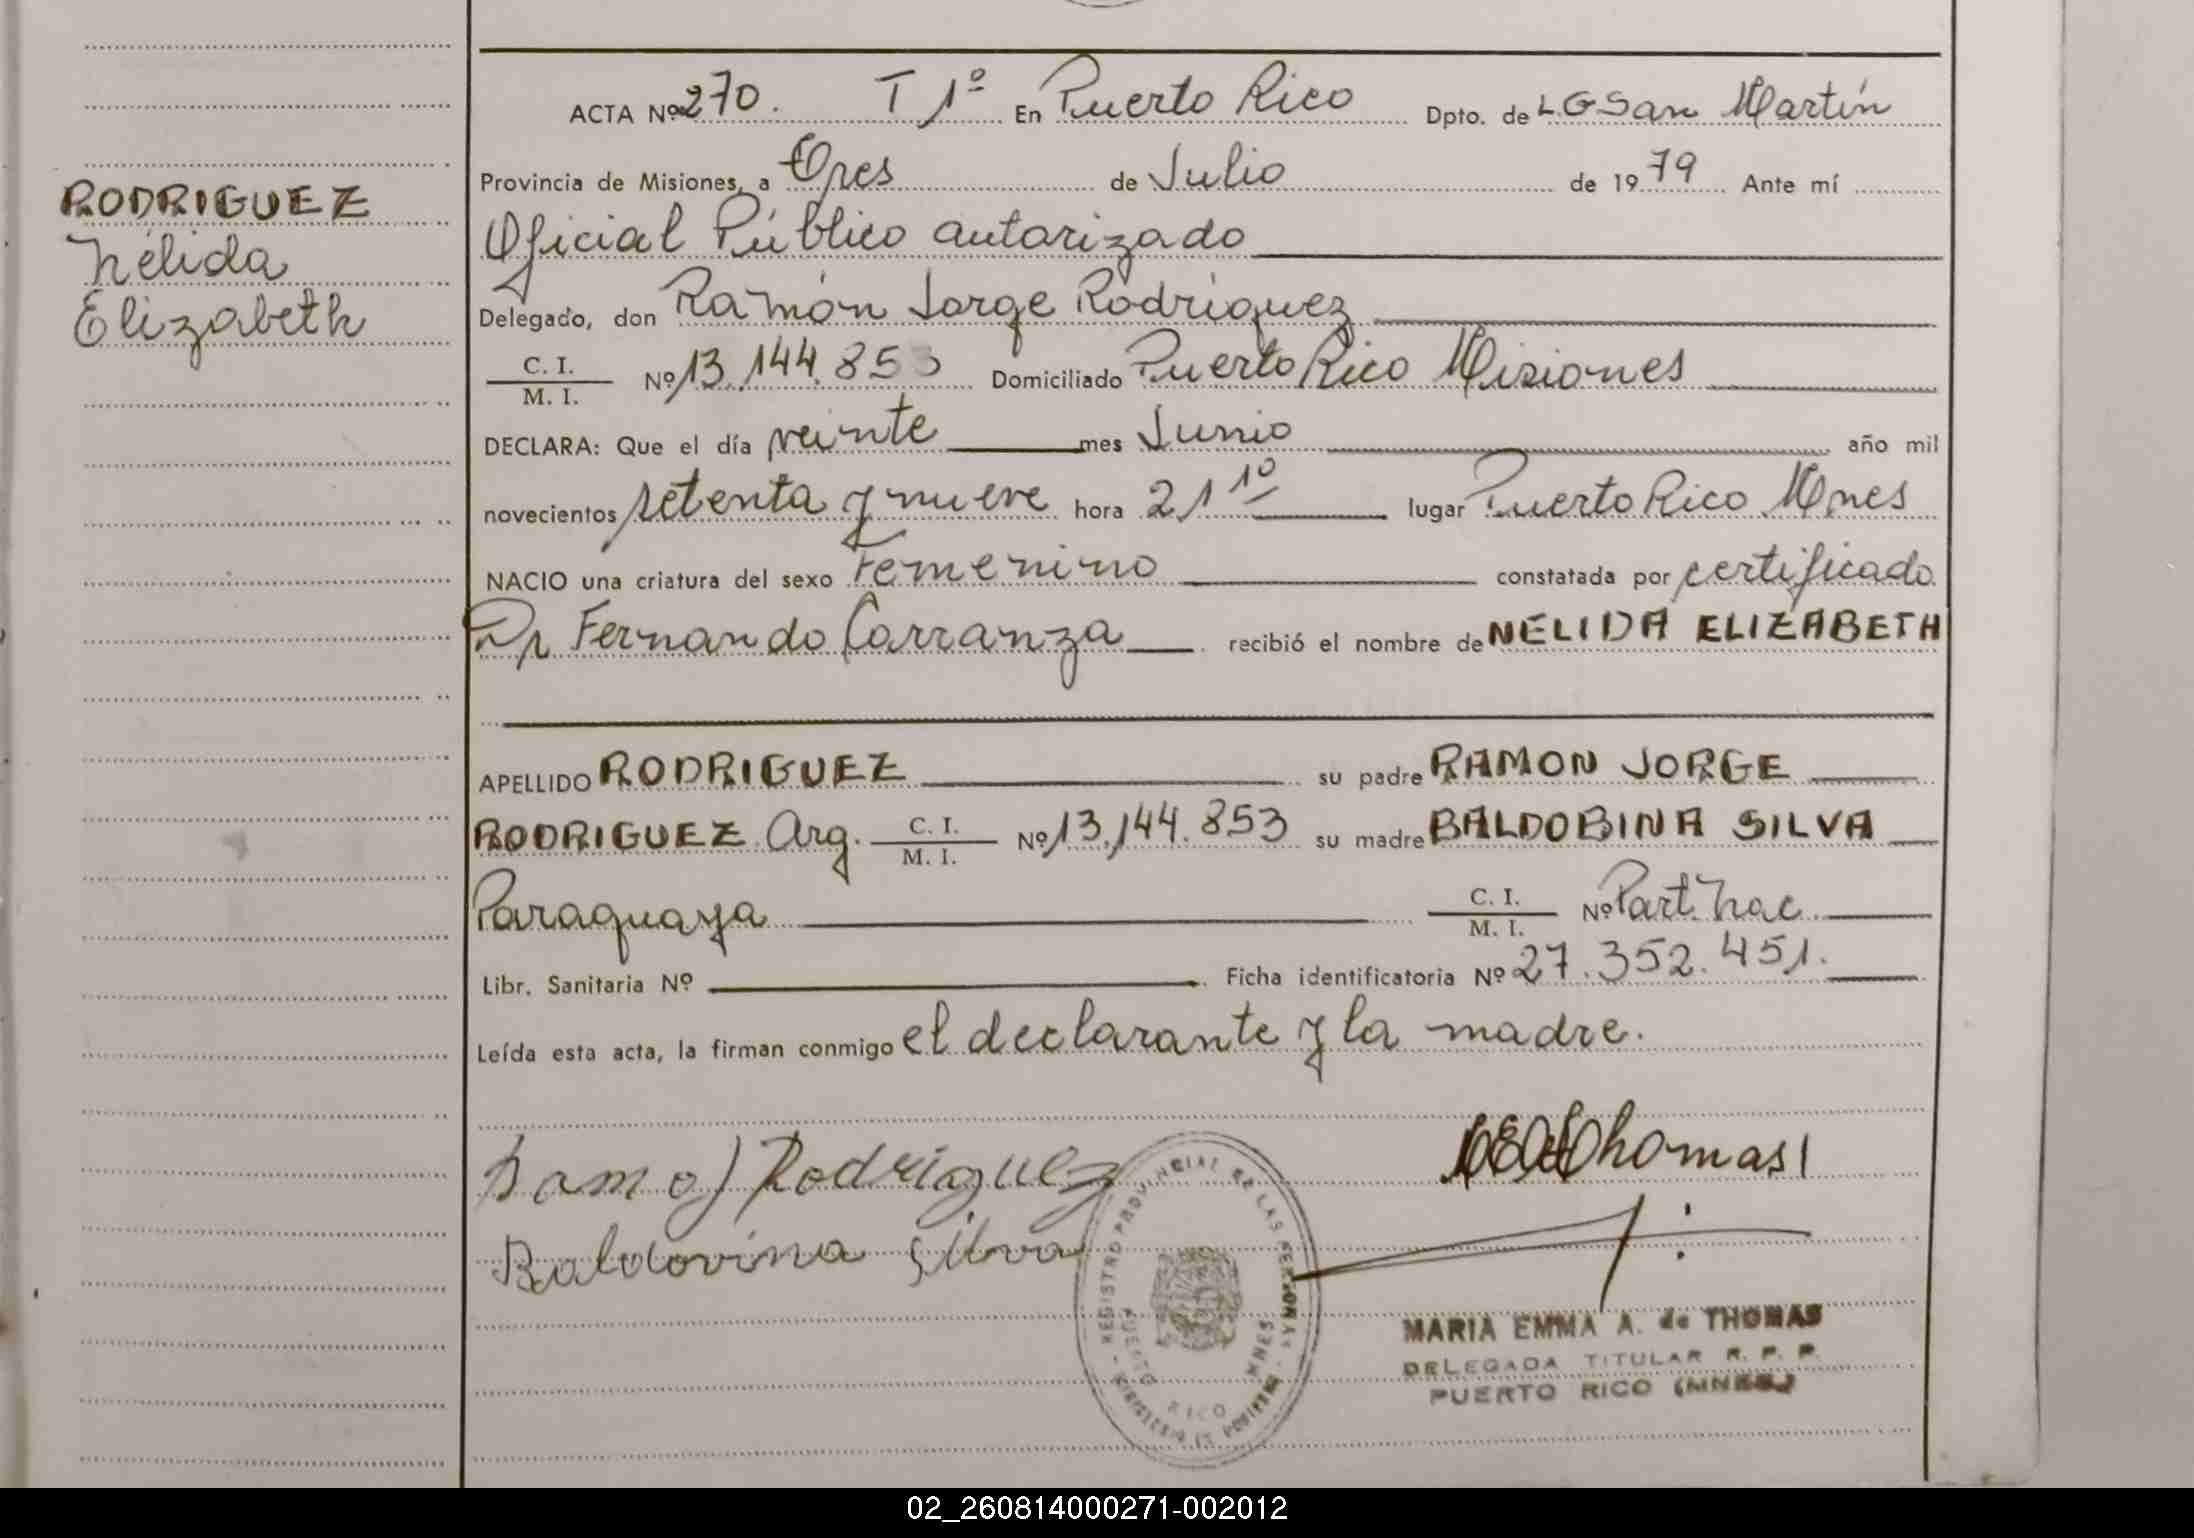 RODRIGUEZ
Nélida
Elizabeth
ACTA Nº 270. T 1º En Puerto Rico Dpto. de LGSan Martín
Provincia de Misiones, a tres de Julio de 1979 Ante mí
Oficial Público autorizado
Delegado, don Ramón Jorge Rodríguez
C. I. / M. I. Nº 13.144.853 Domiciliado Puerto Rico Misiones
DECLARA: Que el día veinte mes Junio año mil
novecientos setenta y nueve hora 21 10 lugar Puerto Rico Mnes
NACIO una criatura del sexo Femenino constatada por certificado
Dr Fernando Carranza recibió el nombre de NÉLIDA ELIZABETH
APELLIDO RODRIGUEZ su padre RAMON JORGE
RODRIGUEZ Arg. C. I. / M. I. Nº 13.144.853 su madre BALDOBINA SILVA
Paraguaya C. I. / M. I. Nº Part. Nac.
Libr. Sanitaria Nº Ficha identificatoria Nº 27.352.451.
Leída esta acta, la firman conmigo el declarante y la madre.
Ramo J Rodriguez
Thomas
Baldovina Silva
REGISTRO PROVINCIAL DE LAS PERSONAS
PUERTO RICO MNES
MARIA EMMA A. de THOMAS
DELEGADA TITULAR R. P. P.
PUERTO RICO (MNES.)
02_260814000271-002012